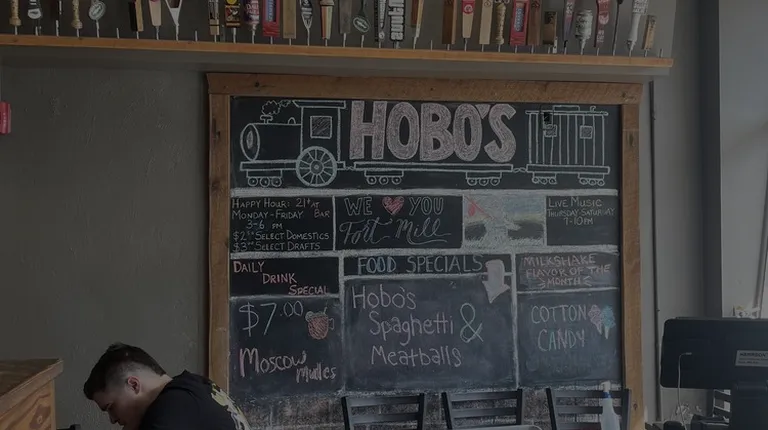 HOBO'S
HAPPY HOUR: 21+ AT
MONDAY-FRIDAY BAR
3-6 PM
SELECT DOMESTICS
SELECT DRAFTS
WE ❤ YOU
Fort Mill
LIVE MUSIC
THURSDAY-SATURDAY
7-10PM
DAILY
DRINK
SPECIAL
$7.00
Moscow
Mules
FOOD SPECIALS
Hobo's
Spaghetti &
Meatballs
MILKSHAKE
FLAVOR OF THE
MONTH
COTTON
CANDY